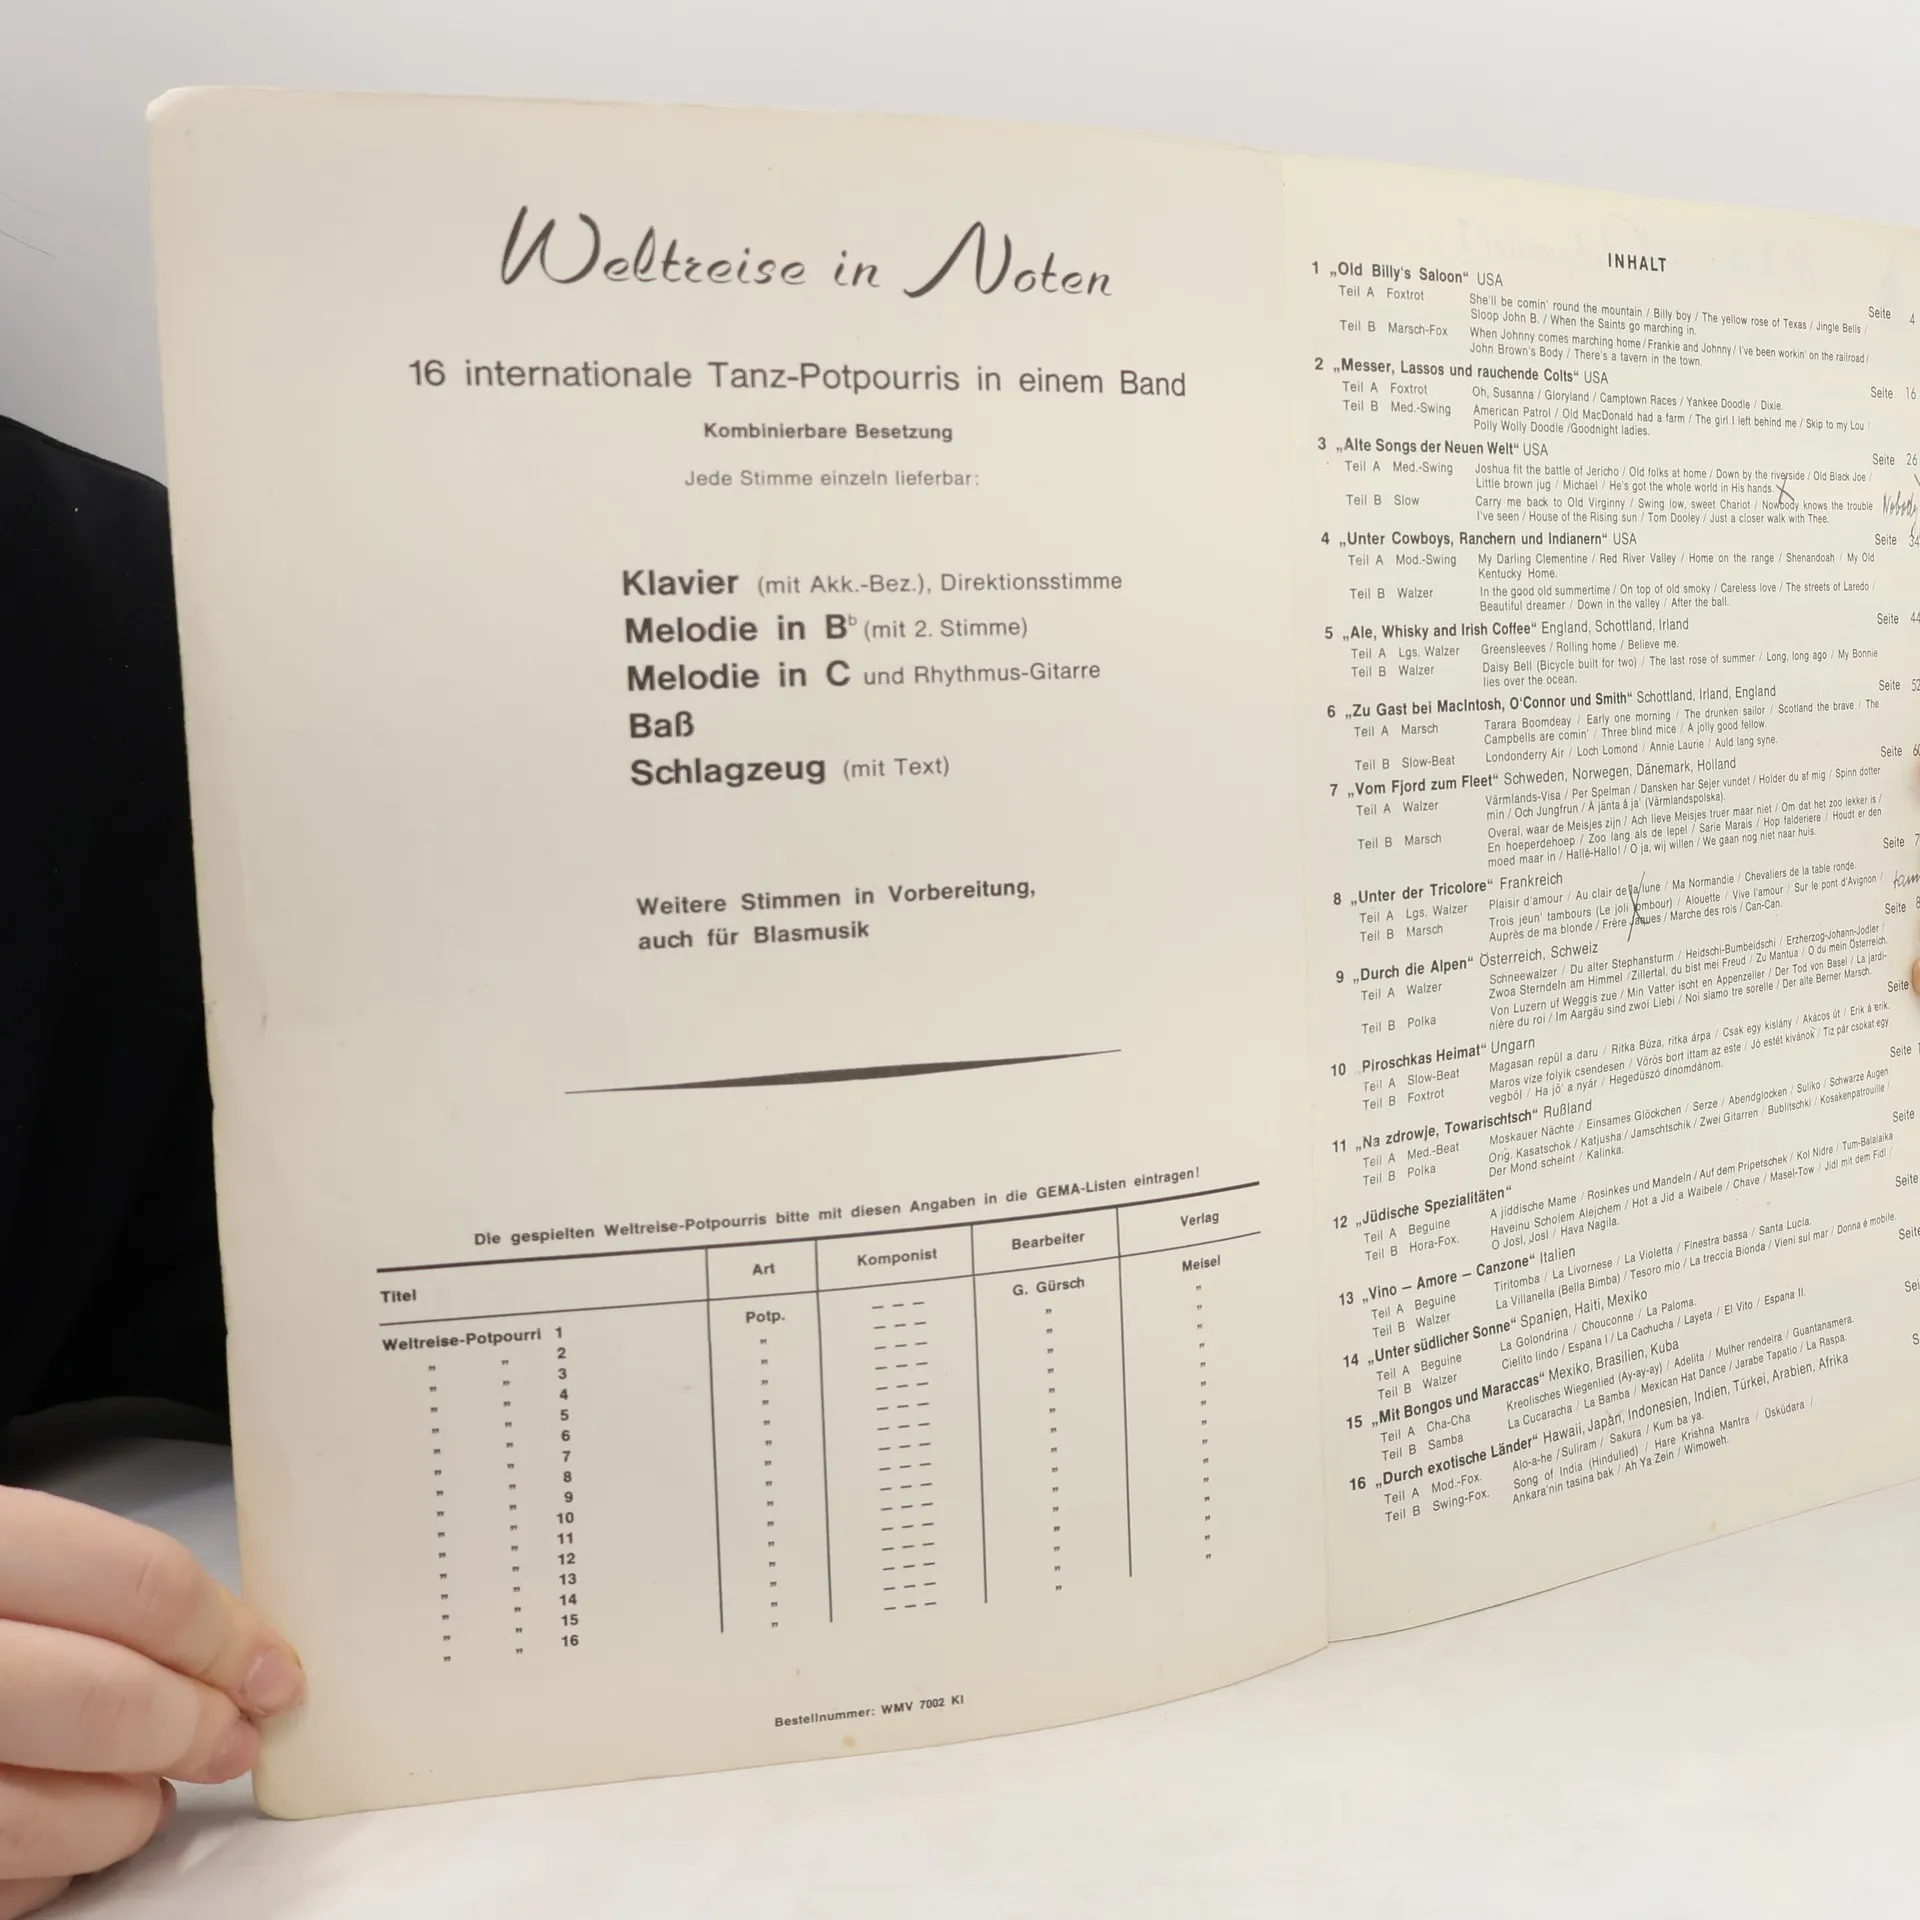 Weltreise in Noten
16 internationale Tanz-Potpourris in einem Band
Kombinierbare Besetzung
Jede Stimme einzeln lieferbar:
Klavier (mit Akk.-Bez.), Direktionsstimme
Melodie in Bb (mit 2. Stimme)
Melodie in C und Rhythmus-Gitarre
Baß
Schlagzeug (mit Text)
Weitere Stimmen in Vorbereitung,
auch für Blasmusik
Die gespielten Weltreise-Potpourris bitte mit diesen Angaben in die GEMA-Listen eintragen!
Titel Art Komponist Bearbeiter Verlag
Weltreise-Potpourri 1 Potp. – – – G. Gürsch Meisel
" " 2 " – – – " "
" " 3 " – – – " "
" " 4 " – – – " "
" " 5 " – – – " "
" " 6 " – – – " "
" " 7 " – – – " "
" " 8 " – – – " "
" " 9 " – – – " "
" " 10 " – – – " "
" " 11 " – – – " "
" " 12 " – – – " "
" " 13 " – – – " "
" " 14 " – – – " "
" " 15 " – – – " "
" " 16 " – – – " "
Bestellnummer: WMV 7002 Kl
INHALT
1 „Old Billy's Saloon“ USA Seite 4
Teil A Foxtrot She'll be comin' round the mountain / Billy boy / The yellow rose of Texas / Jingle Bells /
Sloop John B. / When the Saints go marching in.
Teil B Marsch-Fox When Johnny comes marching home / Frankie and Johnny / I've been workin' on the railroad /
John Brown's Body / There's a tavern in the town.
2 „Messer, Lassos und rauchende Colts“ USA Seite 16
Teil A Foxtrot Oh, Susanna / Gloryland / Camptown Races / Yankee Doodle / Dixie.
Teil B Med.-Swing American Patrol / Old MacDonald had a farm / The girl I left behind me / Skip to my Lou /
Polly Wolly Doodle / Goodnight ladies.
3 „Alte Songs der Neuen Welt“ USA Seite 26
Teil A Med.-Swing Joshua fit the battle of Jericho / Old folks at home / Down by the riverside / Old Black Joe /
Little brown jug / Michael / He's got the whole world in His hands.
Teil B Slow Carry me back to Old Virginny / Swing low, sweet Chariot / Nowbody knows the trouble Nobody
I've seen / House of the Rising sun / Tom Dooley / Just a closer walk with Thee.
4 „Unter Cowboys, Ranchern und Indianern“ USA Seite 34
Teil A Mod.-Swing My Darling Clementine / Red River Valley / Home on the range / Shenandoah / My Old
Kentucky Home.
Teil B Walzer In the good old summertime / On top of old smoky / Careless love / The streets of Laredo /
Beautiful dreamer / Down in the valley / After the ball.
5 „Ale, Whisky and Irish Coffee“ England, Schottland, Irland Seite 44
Teil A Lgs. Walzer Greensleeves / Rolling home / Believe me.
Teil B Walzer Daisy Bell (Bicycle built for two) / The last rose of summer / Long, long ago / My Bonnie
lies over the ocean.
6 „Zu Gast bei MacIntosh, O'Connor und Smith“ Schottland, Irland, England Seite 52
Teil A Marsch Tarara Boomdeay / Early one morning / The drunken sailor / Scotland the brave / The
Campbells are comin' / Three blind mice / A jolly good fellow.
Teil B Slow-Beat Londonderry Air / Loch Lomond / Annie Laurie / Auld lang syne.
7 „Vom Fjord zum Fleet“ Schweden, Norwegen, Dänemark, Holland Seite
Teil A Walzer Värmlands-Visa / Per Spelman / Dansken har Sejer vundet / Holder du af mig / Spinn dotter
min / Och Jungfrun / Å jänta å ja' (Värmlandspolska).
Teil B Marsch Overal, waar de Meisjes zijn / Ach lieve Meisjes truer maar niet / Om dat het zoo lekker is /
En hoeperdehoep / Zoo lang als de lepel / Sarie Marais / Hop falderiere / Houdt er den
moed maar in / Hallé-Hallo! / O ja, wij willen / We gaan nog niet naar huis.
8 „Unter der Tricolore“ Frankreich Seite
Teil A Lgs. Walzer Plaisir d'amour / Au clair de la lune / Ma Normandie / Chevaliers de la table ronde.
Teil B Marsch Trois jeun' tambours (Le joli tombour) / Alouette / Vive l'amour / Sur le pont d'Avignon /
Auprès de ma blonde / Frère Jaques / Marche des rois / Can-Can.
9 „Durch die Alpen“ Österreich, Schweiz Seite
Teil A Walzer Schneewalzer / Du alter Stephansturm / Heidschi-Bumbeidschi / Erzherzog-Johann-Jodler /
Zwoa Sterndeln am Himmel / Zillertal, du bist mei Freud / Zu Mantua / O du mein Österreich.
Teil B Polka Von Luzern uf Weggis zue / Min Vatter ischt en Appenzeller / Der Tod von Basel / La jardi-
nière du roi / Im Aargäu sind zwoi Liebi / Noi siamo tre sorelle / Der alte Berner Marsch.
10 „Piroschkas Heimat“ Ungarn Seite
Teil A Slow-Beat Magasan repül a daru / Ritka Búza, ritka árpa / Csak egy kislány / Akácos út / Erik a erik.
Teil B Foxtrot Maros vize folyik csendesen / Vörös bort ittam az este / Jó estét kivánok / Tiz pár csokat egy
vegböl / Ha jö' a nyár / Hegedüszó dinomdánom.
11 „Na zdrowje, Towarischtsch“ Rußland Seite
Teil A Med.-Beat Moskauer Nächte / Einsames Glöckchen / Serze / Abendglocken / Suliko / Schwarze Augen.
Teil B Polka Orig. Kasatschok / Katjusha / Jamschtschik / Zwei Gitarren / Bublitschki / Kosakenpatrouille /
Der Mond scheint / Kalinka.
12 „Jüdische Spezialitäten“ Seite
Teil A Beguine A jiddische Mame / Rosinkes und Mandeln / Auf dem Pripetschek / Kol Nidre / Tum-Balalaika
Teil B Hora-Fox. Haveinu Scholem Alejchem / Hot a Jid a Waibele / Chave / Masel-Tow / Jidl mit dem Fidl /
O Josl, Josl / Hava Nagila.
13 „Vino – Amore – Canzone“ Italien Seite
Teil A Beguine Tiritomba / La Livornese / La Violetta / Finestra bassa / Santa Lucia.
Teil B Walzer La Villanella (Bella Bimba) / Tesoro mio / La treccia Bionda / Vieni sul mar / Donna è mobile.
14 „Unter südlicher Sonne“ Spanien, Haiti, Mexiko
Teil A Beguine La Golondrina / Chouconne / La Paloma.
Teil B Walzer Cielito lindo / Espana I / La Cachucha / Layeta / El Vito / Espana II.
15 „Mit Bongos und Maraccas“ Mexiko, Brasilien, Kuba
Teil A Cha-Cha Kreolisches Wiegenlied (Ay-ay-ay) / Adelita / Mulher rendeira / Guantanamera.
Teil B Samba La Cucaracha / La Bamba / Mexican Hat Dance / Jarabe Tapatio / La Raspa.
16 „Durch exotische Länder“ Hawaii, Japan, Indonesien, Indien, Türkei, Arabien, Afrika
Teil A Mod.-Fox. Alo-a-he / Suliram / Sakura / Kum ba ya.
Teil B Swing-Fox. Song of India (Hindulied) / Hare Krishna Mantra / Üsküdara /
Ankara'nin tasina bak / Ah Ya Zein / Wimoweh.